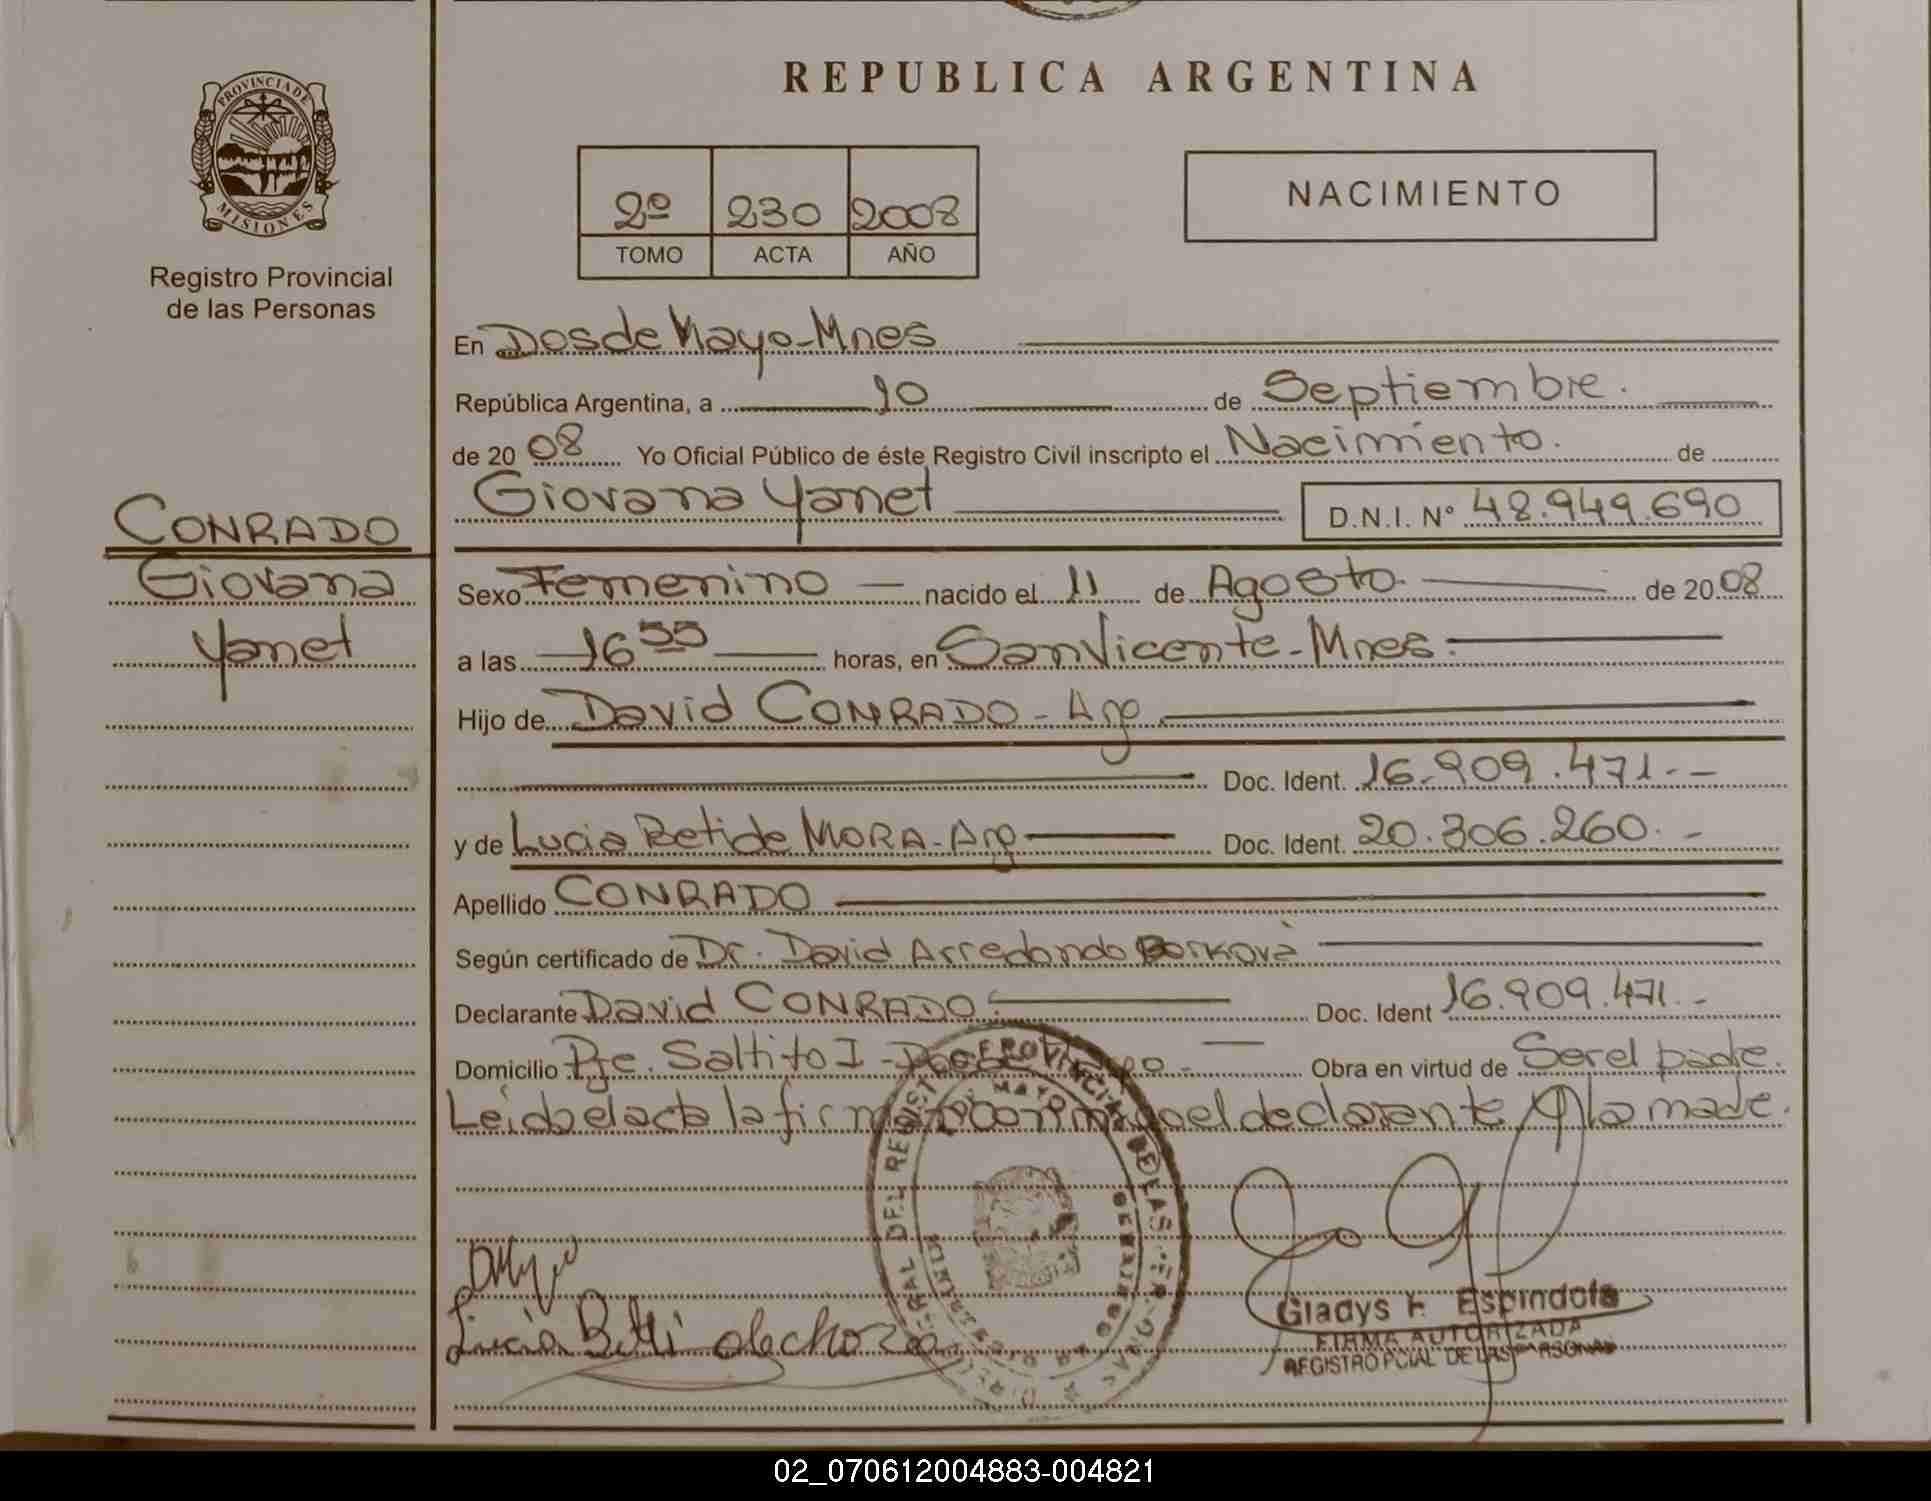 PROVINCIA DE
MISIONES
Registro Provincial
de las Personas
REPUBLICA ARGENTINA
2º 230 2008
TOMO ACTA AÑO
NACIMIENTO
En Dos de Mayo-Mnes
República Argentina, a 10 de Septiembre.
de 2008 Yo Oficial Público de éste Registro Civil inscripto el Nacimiento. de
Giovana Yanet D.N.I. N° 48.949.690
CONRADO
Giovana
Yanet
Sexo Femenino — nacido el 11 de Agosto. de 2008
a las 16 55 horas, en San Vicente-Mnes.
Hijo de David CONRADO - Arg
Doc. Ident. 16.909.471.-
y de Lucia Beti de MORA-Arg Doc. Ident. 20.306.260.-
Apellido CONRADO
Según certificado de Dr. David Arredondo
Declarante David CONRADO. Doc. Ident 16.909.471.-
Domicilio Pje. Saltito I - Dos de Mayo - Obra en virtud de Ser el padre.
Leída el acta la firman conmigo el declarante y la madre.
Gladys F. Espindola
FIRMA AUTORIZADA
REGISTRO PCIAL DE LAS PERSONAS
02_070612004883-004821